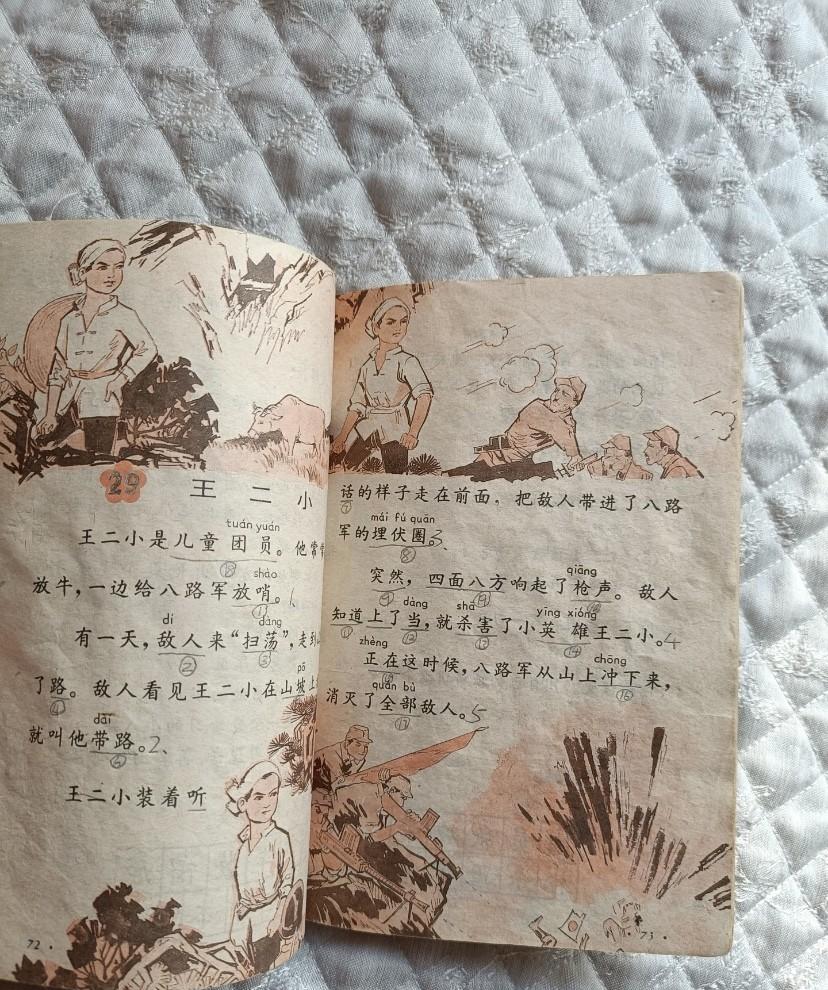 29 王二小
tuán yuán
王二小是儿童团员。他常
shào
放牛,一边给八路军放哨。1、
dí dàng
有一天,敌人来“扫荡”,走到
② ③
pō
了路。敌人看见王二小在山坡上
④
dài
就叫他带路。2、
⑥
王二小装着听
72 ·
话的样子走在前面,把敌人带进了八路
⑦
mái fú quān
军的埋伏圈。3、
⑧
qiāng
突然,四面八方响起了枪声。敌人
⑨
dàng shā yīng xióng
知道上了当,就杀害了小英雄王二小。4
⑫ ⑬ ⑭
zhèng chōng
正在这时候,八路军从山上冲下来,
⑯
quán bù
消灭了全部敌人。5
⑰
· 73 ·